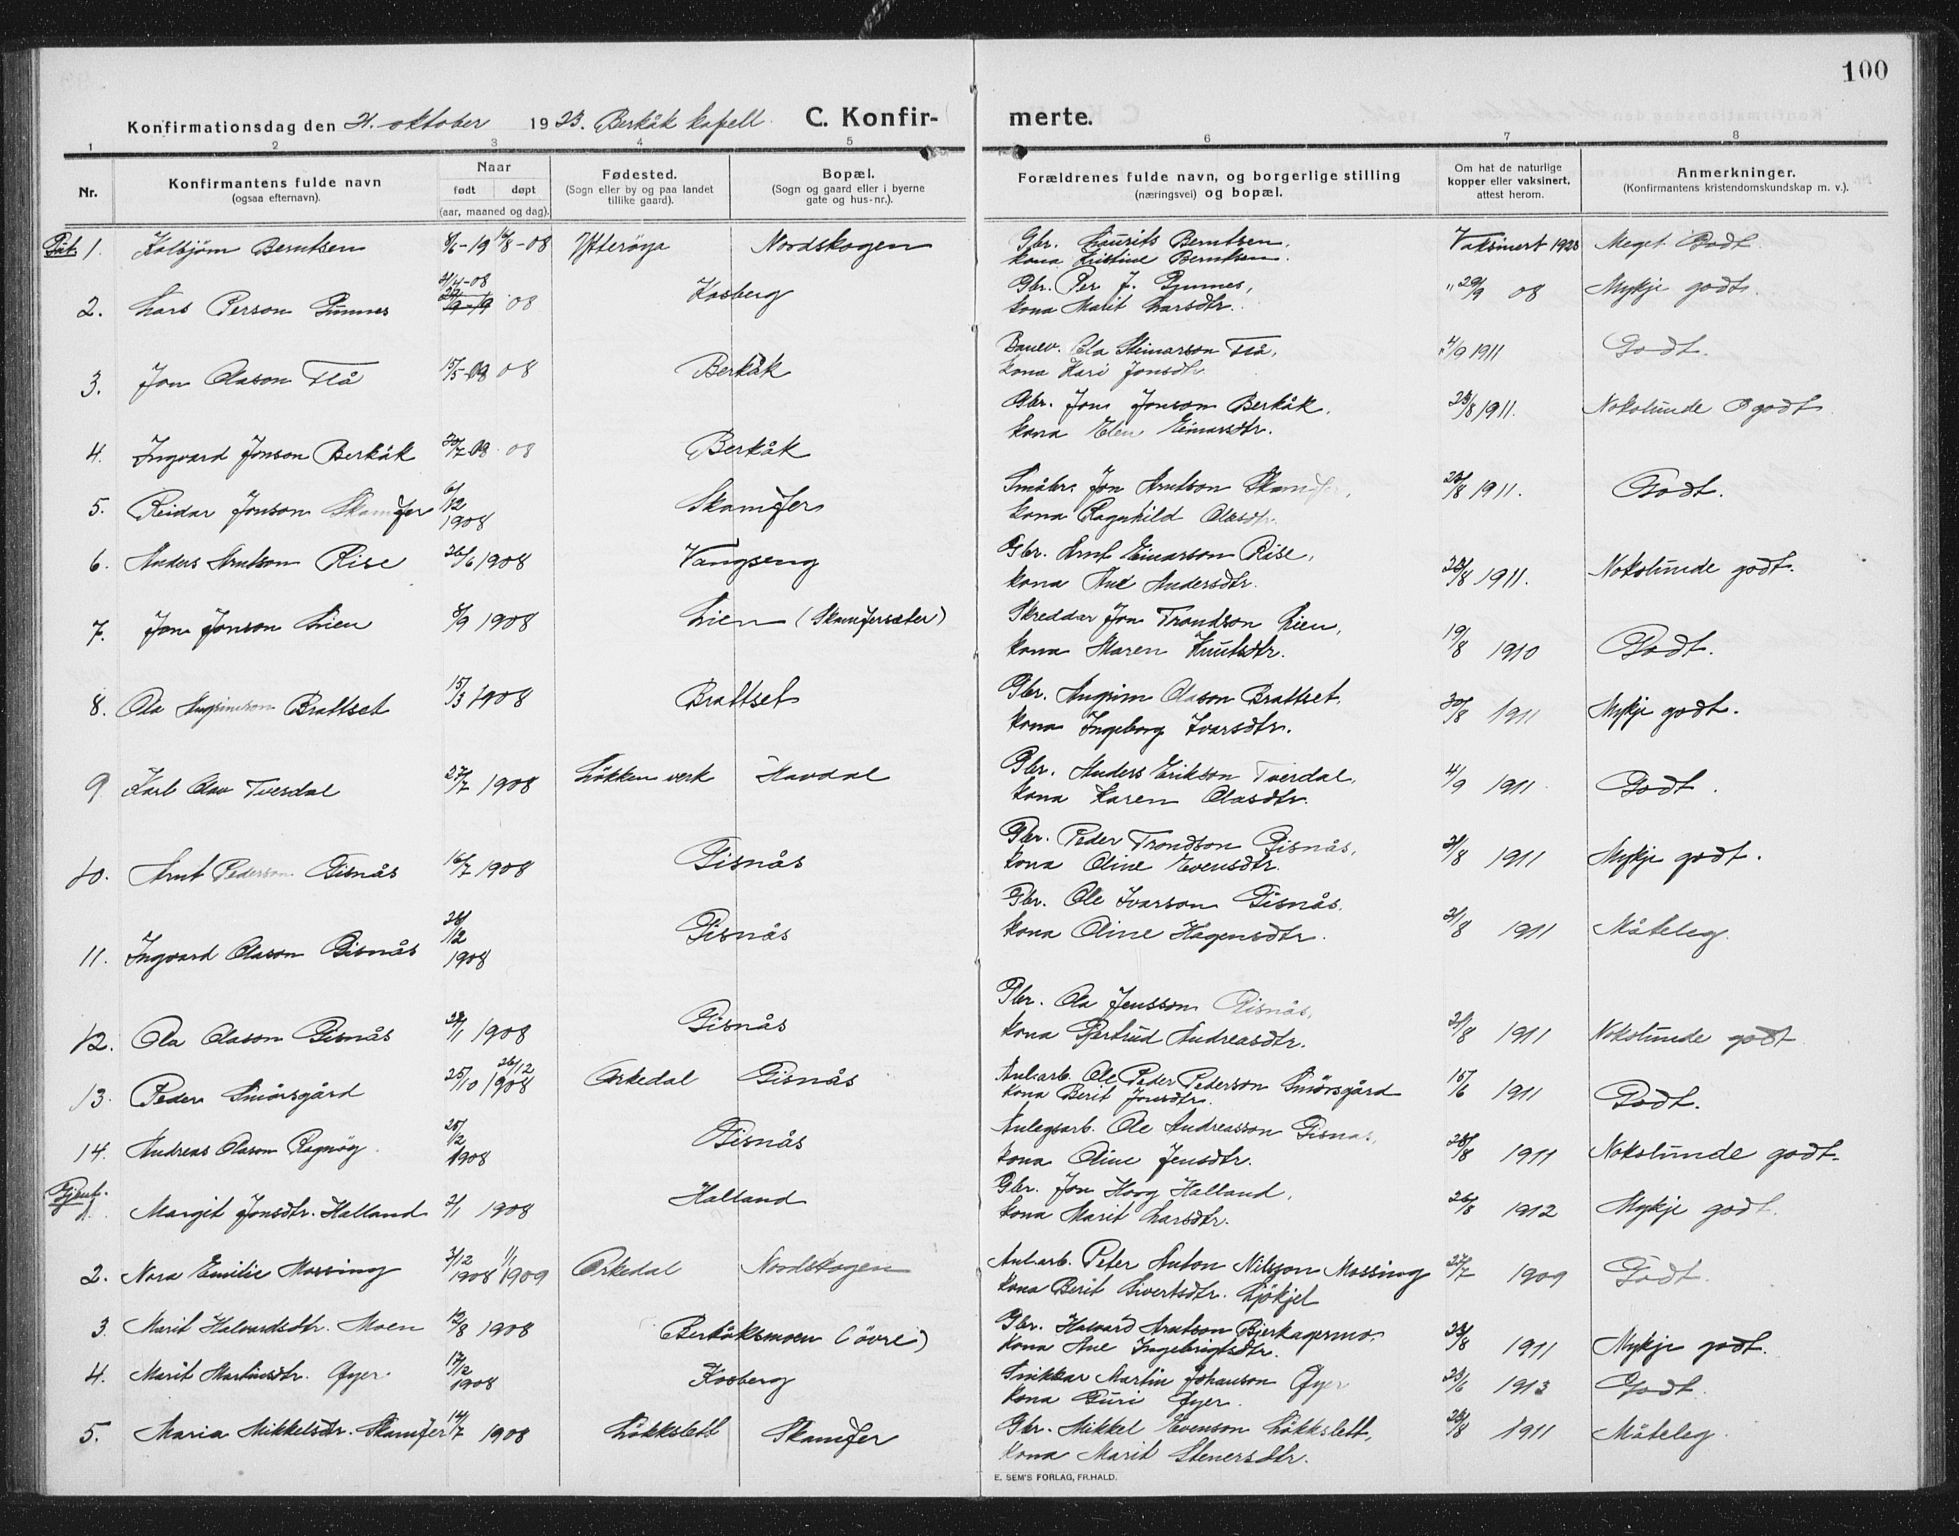 100
Konfirmationsdag den 21. oktober 1923. Berkåk kapell. C. Konfirmerte.
1 2 3 4 5 6 7 8
Nr. Konfirmantens fulde navn (ogsaa efternavn). Naar født døpt (aar, maaned og dag). Fødested. (Sogn eller by og paa landet tillike gaard). Bopæl. (Sogn og gaard eller i byerne gate og hus-nr.). Forældrenes fulde navn, og borgerlige stilling (næringsvei) og bopæl. Om hat de naturlige kopper eller vaksinert, attest herom. Anmerkninger. (Konfirmantens kristendomskundskap m. v.).
1. Kolbjørn Berntsen Ytterøya Nordskogen Gbr. Laurits Berntsen, Vaksinert 1923 Meget Godt
kona Kristine Berntsen.
2. Lars Person Gunnes 21/4-08 Kosberg Gbr. Per J. Gunnes, " 29/9 08 Mykje godt.
kona Marit Larsdtr.
3. Jon Olason Flå 15/5-08 Berkåk Ola Steinarson Flå, 4/9 1911 Godt.
kona Kari Jonsdtr.
4. Ingvard Jonson Berkåk 08 Berkåk Gbr. Jon Jonson Berkåk, 23/8 1911. Nokolunde godt
kona Elen Einarsdtr.
5. Reidar Jonson Skamfer 6/12 1908 Skamfer Småbr. Jon Arntson Skamfer, 23/8 1911. Godt.
kona Ragnhild Olasdtr.
6. Anders Arntson Rise 26/6 1908 Vangseng Gbr. Arnt Einarson Rise, 23/8 1911. Nokolunde godt.
kona Ane Andersdtr.
7. Jon Jonson Lien 8/9 1908 Lien (Skamfersæter) Skreddar Jon Trondson Lien, 19/8 1910 Godt.
kona Maren Knutsdtr.
8. Ola Angrimson Brattset 15/3 1908 Brattset Gbr. Angrim Olason Brattset, 30/8 1911 Mykje godt.
kona Ingeborg Ivarsdtr.
9 Karl Olav Tverdal 27/7 1908 Løkken verk Havdal Gbr. Anders Erikson Tverdal, 4/9 1911. Godt.
kona Karen Olasdtr.
10. Arnt Pederson Gisnås 16/7 1908 Gisnås Gbr. Peder Trondson Gisnås, 21/8 1911 Mykje godt.
kona Oline Evensdtr.
11. Ingvard Olason Gisnås 26/12 1908 Gisnås Gbr. Ole Ivarson Gisnås. 21/8 1911 Måteleg.
kona Oline Hagensdtr.
12. Ola Olason Gisnås 1908 Gisnås Gbr. Ola Jensson Gisnås, 21/8 1911 Nokolunde godt
kona Gjertrud Andreasdtr.
13. Peder Smørsgård 25/10 1908 26/12 Orkedal Gisnås Anl.arb. Ole Peder Pederson Smørsgård 15/6 1911 Godt.
kona Berit Jonsdtr.
14. Andreas Olason Ragnøg 25/2 1908 Gisnås Anlegsarb. Ole Andreasson Gisnås, 28/8 1911 Nokolunde godt.
kona Oline Jensdtr.
Gjent.
1. Margit Jonsdtr. Halland 2/1 1908 Halland Gbr. Jon Hoog Halland, 26/8 1912 Mykje godt.
kona Marit Larsdtr.
2. Nora Emilie Mossing 3/12 1908 1/1 1909 Orkedal Nordskogen Anl.arb. Peter Anton Nilsson Mossing 27/7 1909 Godt.
kona Berit Sivertsdtr. Ljøkjel
3. Marit Halvardsdtr. Moen 12/8 1908 Berkåksmoen (øvre) Gbr. Halvard Arntson Bjerkagermo, 23/8 1911 Mykje godt.
kona Ane Ingebrigtsdtr.
4. Marit Martinsdtr. Øyer 17/12 1908 Kosberg Snikkar Martin Johanson Øyer 23/6 1913 Godt
kona Guri Øyer.
5. Maria Mikkelsdtr. Skamfer 14/7 1908 Løkkslett Skamfer Gbr. Mikkel Evenson Løkkslett, 23/8 1911 Måteleg.
kona Marit Stenersdtr.
E. SEM'S FORLAG, FR.HALD.